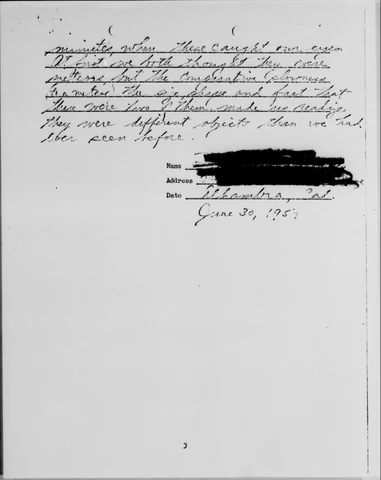 minutes when these caught our eyes
At first we both thought they were
meteors, but the comparative (slowness
to a meteor) the size, shape and fact that
there were two of them, made us realize
they were different objects than we had
ever seen before.
Name
Address
Date Alhambra, Cal.
June 30, 195
3